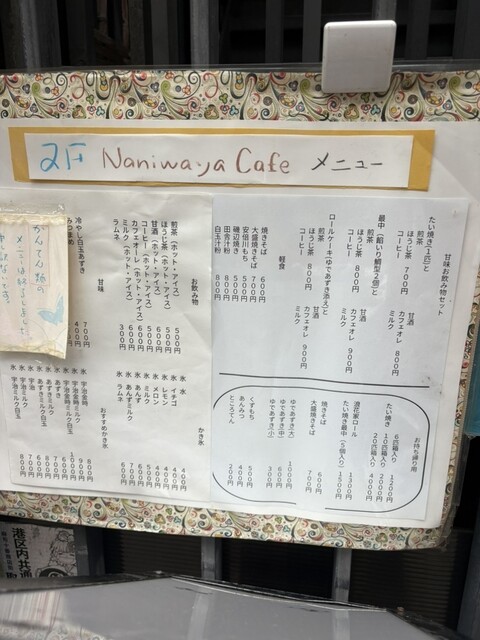 2F Naniwaya Cafe メニュー
甘味お飲み物セット
たい焼き(1匹)と
煎茶
ほうじ茶 700円
コーヒー
甘酒
カフェオレ 800円
ミルク
最中(餡いり鯛型2個)と
煎茶
ほうじ茶 800円
コーヒー
甘酒
カフェオレ 900円
ミルク
ロールケーキ(ゆであずき添え)と
煎茶
ほうじ茶 800円
コーヒー
甘酒
カフェオレ 900円
ミルク
軽食
焼きそば 600円
大盛焼きそば 700円
安倍川もち 500円
磯辺焼き 500円
田舎汁粉 800円
白玉汁粉 800円
お持ち帰り用
たい焼き
6匹箱入り 1200円
10匹箱入り 2000円
20匹箱入り 4000円
浪花家ロール 1300円
たい焼き最中(5個入り) 1500円
焼きそば 600円
大盛焼きそば 700円
ゆであずき(大)
ゆであずき(中)
ゆであずき(小)
くずもち 500円
あんみつ
ところてん 200円
お飲み物
煎茶(ホット・アイス) 500円
ほうじ茶(ホット・アイス) 500円
甘酒(ホット・アイス)
コーヒー(ホット・アイス)
カフェオーレ(ホット・アイス) 600円
ミルク(ホット・アイス) 600円
ラムネ 300円
甘味
冷やし白玉あずき 700円
みつまめ 400円
かんてん類の
メニューは終了しまして
申し訳ないです。
かき氷
氷 イチゴ 400円
氷 レモン 400円
氷 メロン 400円
氷 ミルク
氷 あんず
氷 あんずミルク 700円
氷 ラムネ
おすすめかき氷
氷 宇治金時 800円
氷 宇治金時ミルク 900円
氷 宇治金時ミルク白玉 1000円
氷 あずき
氷 あずきミルク
氷 あずきミルク白玉
氷 宇治
氷 宇治ミルク
氷 宇治ミルク白玉 800円
港区内共通